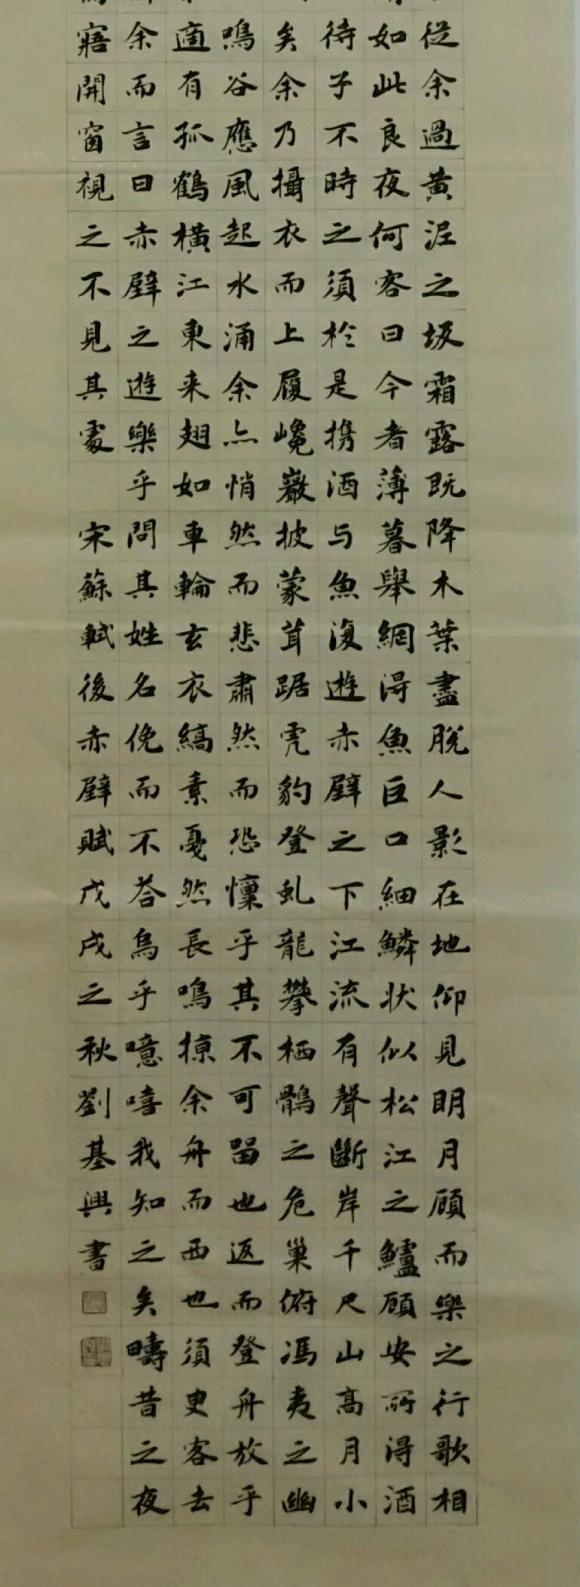 從余過黃泥之坂霜露既降木葉盡脫人影在地仰見明月顧而樂之行歌相
如此良夜何客曰今者薄暮舉網得魚巨口細鱗狀似松江之鱸顧安所得酒
待子不時之須於是携酒与魚復遊赤壁之下江流有聲斷岸千尺山高月小
矣余乃攝衣而上履巉巖披蒙茸踞虎豹登虬龍攀栖鶻之危巢俯馮夷之幽
鳴谷應風起水涌余亦悄然而悲肅然而恐懍乎其不可留也返而登舟放乎
適有孤鶴橫江東来翅如車輪玄衣縞素戛然長鳴掠余舟而西也須臾客去
余而言曰赤壁之遊樂乎問其姓名俛而不答烏乎噫嘻我知之矣疇昔之夜
寤開窗視之不見其處 宋蘇軾後赤壁賦戊戌之秋劉基興書